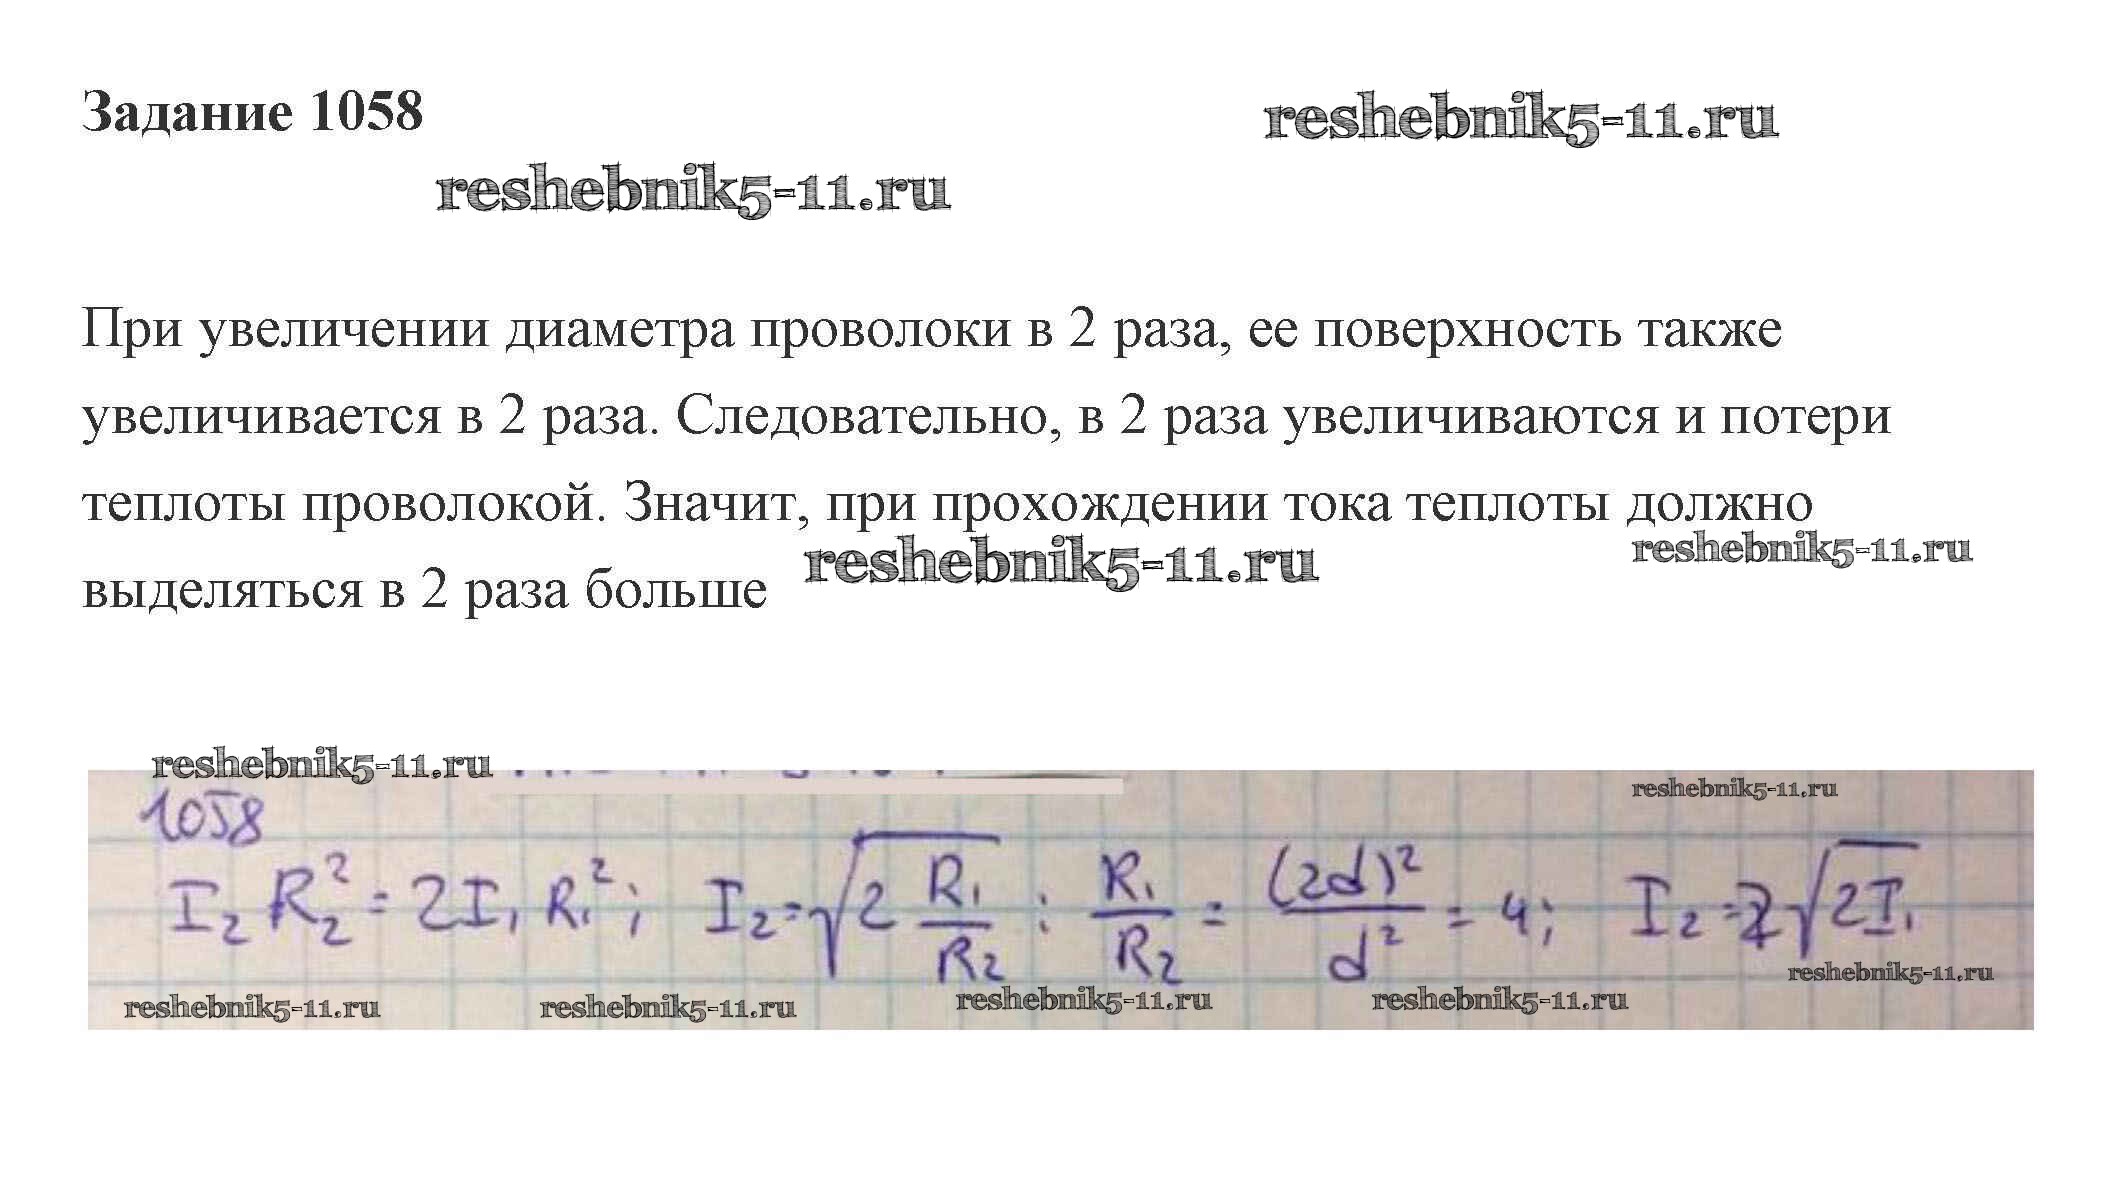 Задание 1058
reshebnik5-11.ru
reshebnik5-11.ru
При увеличении диаметра проволоки в 2 раза, ее поверхность также
увеличивается в 2 раза. Следовательно, в 2 раза увеличиваются и потери
теплоты проволокой. Значит, при прохождении тока теплоты должно
выделяться в 2 раза больше
reshebnik5-11.ru
reshebnik5-11.ru
reshebnik5-11.ru
reshebnik5-11.ru
1058
I₂ R₂² = 2I₁ R₁²; I₂ = √(2 R₁/R₂) : R₁/R₂ = (2d)²/d² = 4; I₂ = 2√(2I₁)
reshebnik5-11.ru
reshebnik5-11.ru
reshebnik5-11.ru
reshebnik5-11.ru
reshebnik5-11.ru